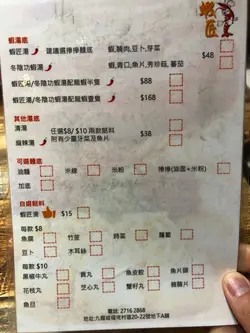 蝦匠
蝦湯底
蝦匠湯 建議選擇撈麵底 蝦,腩肉,豆卜,芽菜
$48
冬陰功蝦湯 蝦,青口,魚片,秀珍菇,蕃茄
蝦匠湯/冬陰功蝦湯配龍蝦半隻 $88
蝦匠湯/冬陰功蝦湯配龍蝦壹隻 $168
其他湯底
清湯 任選$8/ $10 兩款餸料 $38
麻辣湯 附有少量芽菜及魚片
可選麵底
油麵 米線 米粉 (油麵+米粉)
加底
自選餸料
蝦匠湯 $15
每款 $8
魚腐 竹笙 時菜 蘿蔔
豆卜 木耳絲
每款 $10
黑椒牛丸 貢丸 魚皮餃 魚片頭
花枝丸 芝心丸 蟹籽丸 豬腩片
魚旦
電話: 2716 2868
地址:九龍城福佬村道20-22號地下A舖